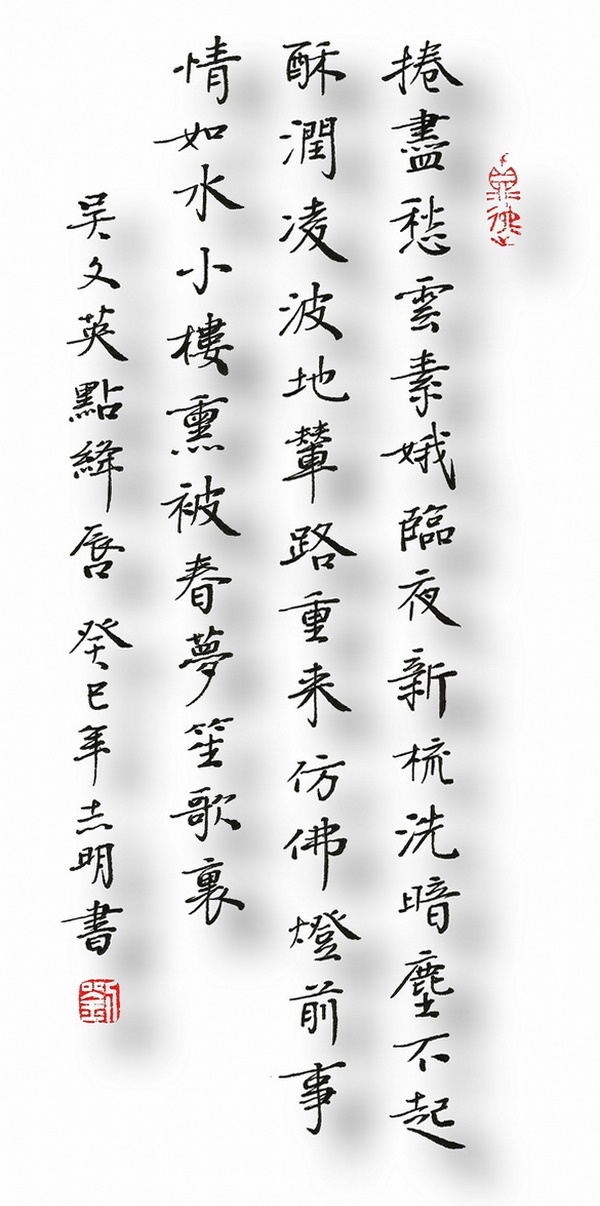 捲盡愁雲素娥臨夜新梳洗暗塵不起
酥潤凌波地輦路重来仿佛燈前事
情如水小樓熏被春夢笙歌裏
吴文英點絳唇 癸巳年志明書
劉